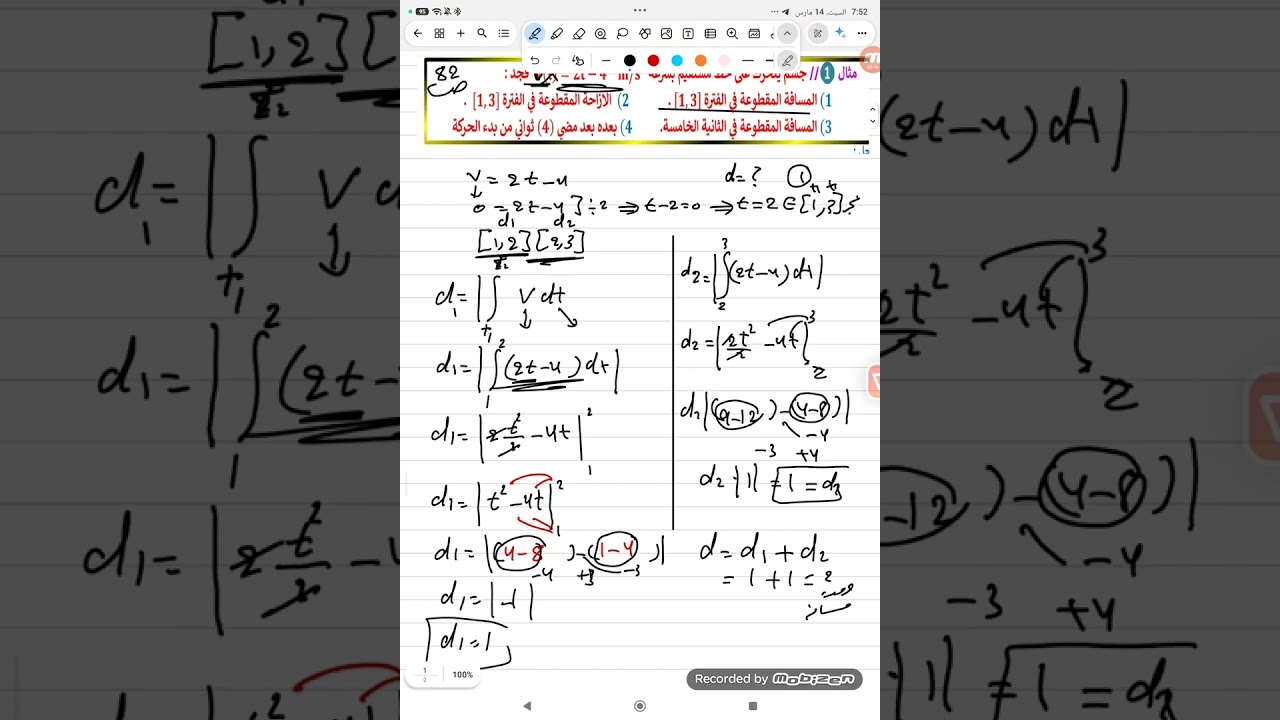 7:52 السبت، 14 مارس
95
82
ص
مثال 1 // جسم يتحرك على خط مستقيم بسرعة V(t) = 2t − 4 m/s فجد :
1) المسافة المقطوعة في الفترة [1,3] . 2) الازاحة المقطوعة في الفترة [1,3] .
3) المسافة المقطوعة في الثانية الخامسة. 4) بعده بعد مضي (4) ثواني من بدء الحركة
d=? 1
V = 2t−4
0 = 2t−4] ÷2 ⇒ t−2=0 ⇒ t=2 ∈ [1,3]
d1 d2
[1,2] [2,3]
d1 = |∫ V dt
t1
d1 = |∫₁² (2t−4) dt|
d1 = |2t²/2 − 4t|₁²
d1 = |t² − 4t|₁²
d1 = |(4−8) − (1−4)|
−4 +3 −3
d1 = |−1|
d1 = 1
d2 = |∫₂³ (2t−4) dt|
d2 = |2t²/2 − 4t|₂³
d2 |(9−12) − (4−8)|
−4
−3 +4
d2 = |1| = 1 = d2
d = d1 + d2
= 1 + 1 = 2
1
2
100%
Recorded by MOBIZEN